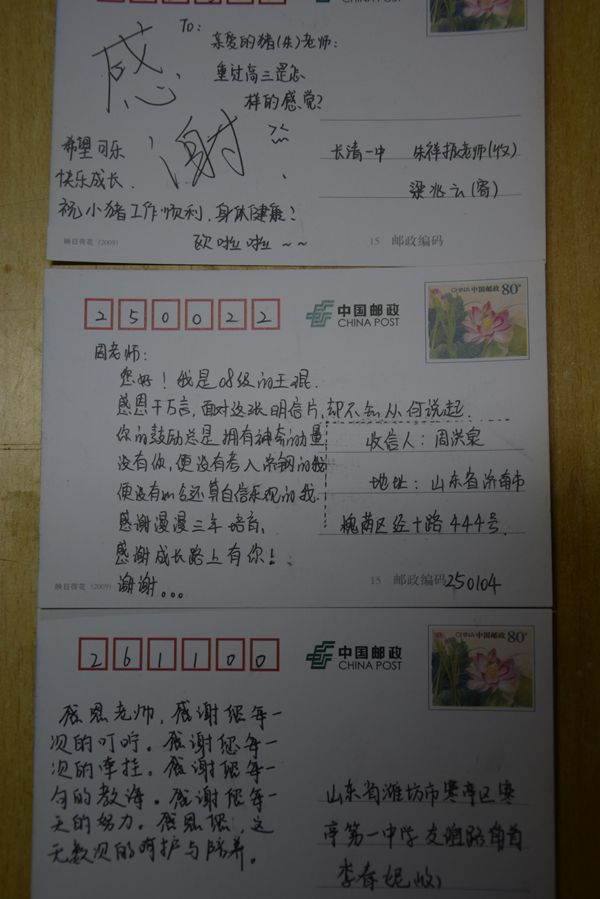 To:
亲爱的猪(朱)老师:
重过高三是怎
样的感觉?
感
谢!
希望可乐
快乐成长.
祝小猪工作顺利,身体健康!
欧啦啦~~
长清一中 朱祥振老师(收)
梁兆云(寄)
映日荷花 (2009)
15 邮政编码
250022
中国邮政
CHINA POST
CHINA 中国邮政 80分
周老师:
您好!我是08级的王琨.
感恩千万言,面对这张明信片,却不知从何说起.
你的鼓励总是拥有神奇的力量
没有你,便没有考入
便没有如今还算自信乐观的我.
感谢漫漫三年培育.
感谢成长路上有你!
谢谢...
收信人: 周洪泉
地址: 山东省济南市
槐荫区经十路444号.
映日荷花 (2009)
15 邮政编码250104
261100
中国邮政
CHINA POST
CHINA 中国邮政 80分
感恩老师,感谢您每一
次的叮咛。感谢您每一
次的牵挂。感谢您每一
句的教诲。感谢您每一
天的努力。感恩您,这
无数次的呵护与培养。
山东省潍坊市寒亭区寒
亭第一中学 友谊路南首
李春妮(收)